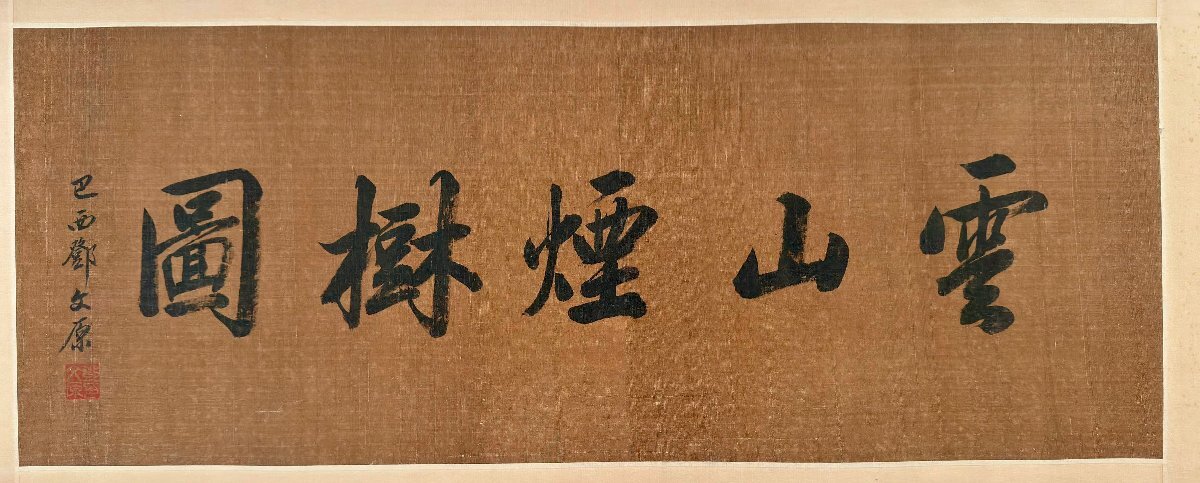 雲山煙樹圖
巴西鄧文原